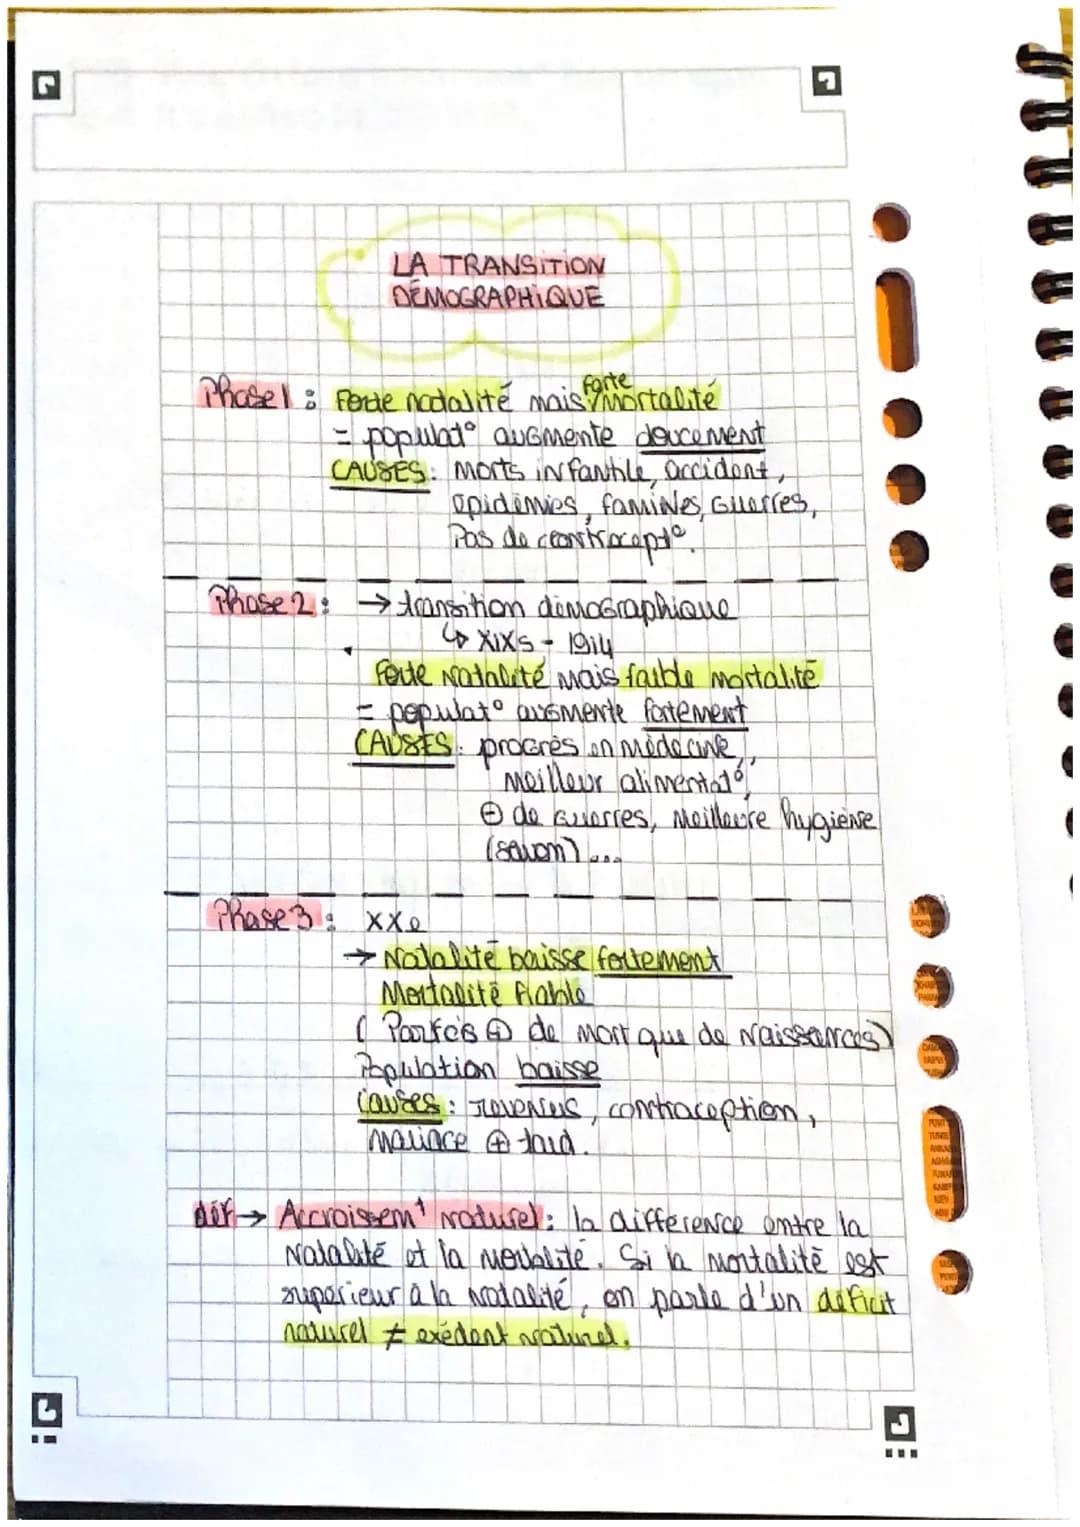 LA TRANSITION
DÉMOGRAPHIQUE
Phase 1 : Forte natalité mais forte mortalité
= populat° augmente doucement
CAUSES : Morts infantile, accident,
épidémies, famines, Guerres,
Pas de contracept°.
Phase 2 : → transition démographique
↳ XIXs - 1914
Forte natalité mais faible mortalité
= populat° augmente fortement
CAUSES : progrès en médecine,
Meilleur alimentat°,
⊖ de guerres, Meilleure hygiène
(savon) ...
Phase 3 : XXe
→ Natalité baisse fortement
Mortalité fiable
( Parfois ⊕ de mort que de Naissances)
Population baisse
Causes : revenus, contraception,
mariage ⊕ tard.
déf → Accroissemt naturel : la différence entre la
Natalité et la mortalité. Si la mortalité est
supérieur à la natalité, on parle d'un déficit
naturel ≠ exédent naturel.